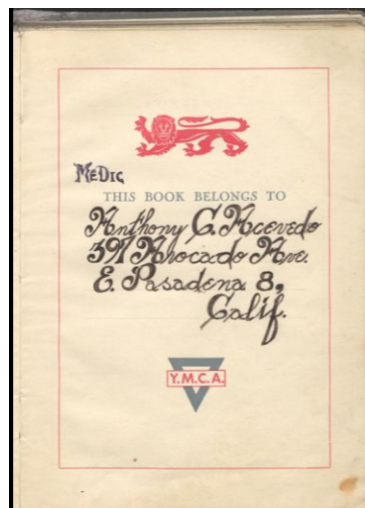 MEDIC
THIS BOOK BELONGS TO
Anthony C. Acevedo
391 Avocado Ave.
E. Pasadena 8,
Calif.
Y.M.C.A.